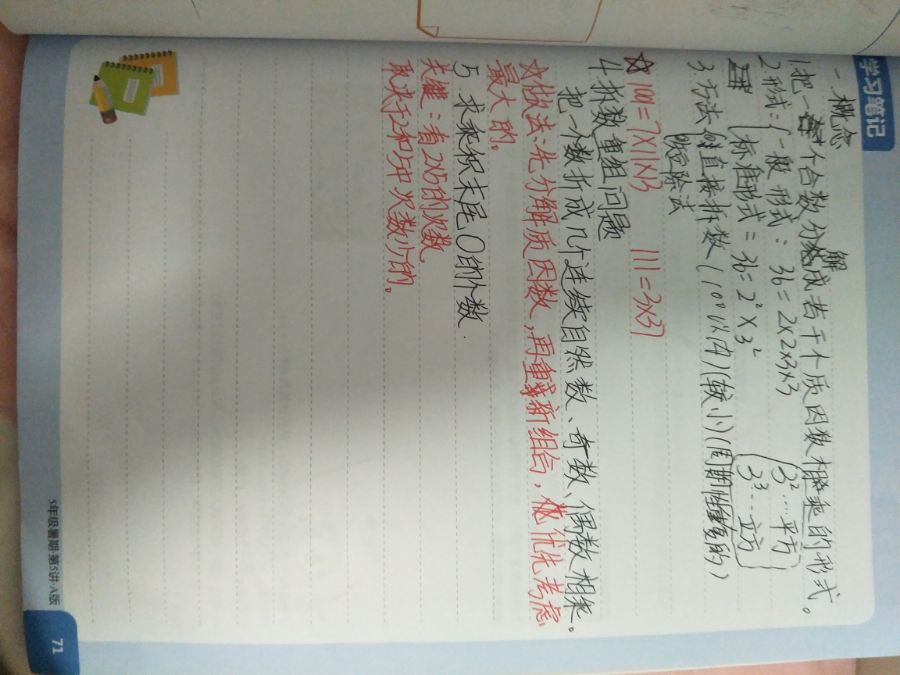 学习笔记
一.概念
1.把一个合数分解成若干个质因数相乘的形式。
2.形式:一般形式:36=2×2×3×3
标准形式=36=2²×3²
3²…平方
3³…立方
3.方法 直接拆数(100以内)(较小)(周期性的)
短除法
☆1001=7×11×13 111=3×37
4.拆数重组问题
把一个数拆成几个连续自然数、奇数、偶数相乘。
做法:先分解质因数,再重新组合,优先考虑
最大的。
5.求乘积末尾0的个数.
关键:看2与5的次数
取决于2和5中次数少的。
5年级暑期·第5讲·A版
71